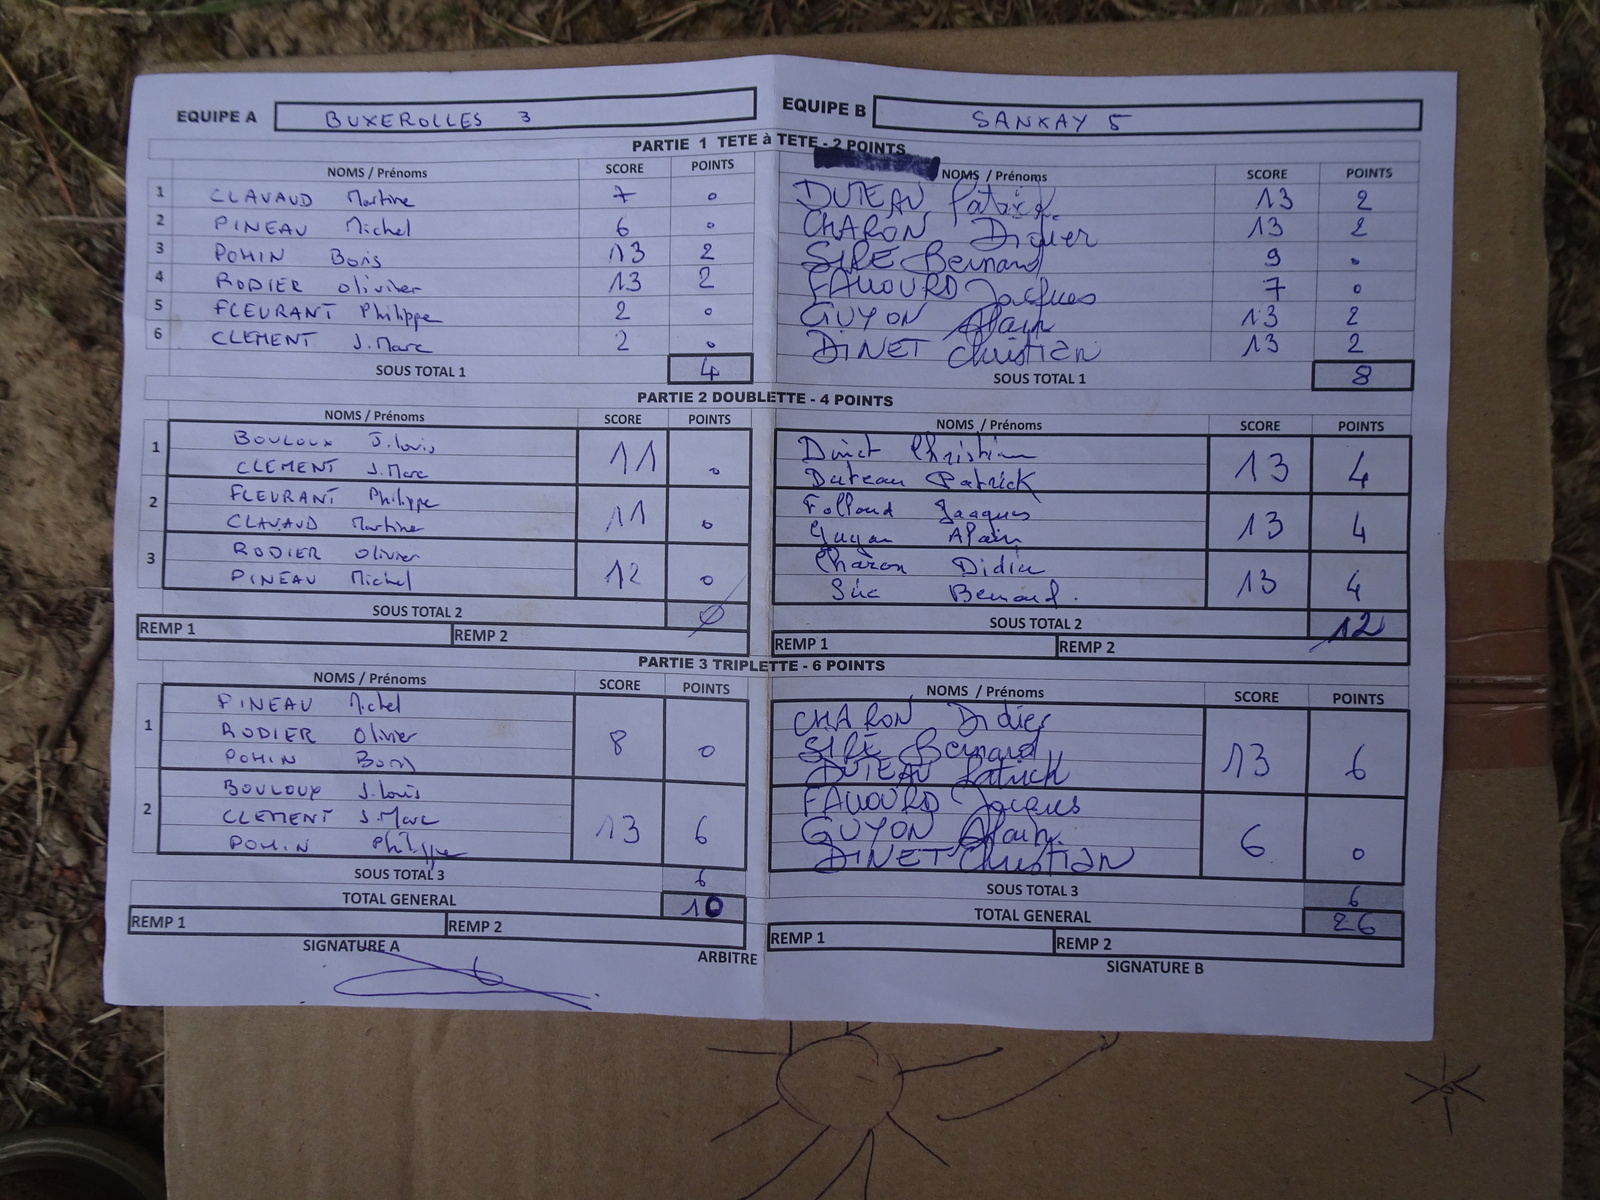 EQUIPE A BUXEROLLES 3 EQUIPE B SANXAY 5
PARTIE 1 TETE à TETE - 2 POINTS
NOMS / Prénoms SCORE POINTS NOMS / Prénoms SCORE POINTS
1 CLAVAUD Martine 7 0 DUTEAU Patrick 13 2
2 PINEAU Michel 6 0 CHARON Didier 13 2
3 POHIN Boris 13 2 SIRE Bernard 9 0
4 RODIER Olivier 13 2 Jacques 7 0
5 FLEURANT Philippe 2 0 GUYON Alain 13 2
6 CLEMENT J.Marc 2 0 DINET Christian 13 2
SOUS TOTAL 1 4 SOUS TOTAL 1 8
PARTIE 2 DOUBLETTE - 4 POINTS
NOMS / Prénoms SCORE POINTS NOMS / Prénoms SCORE POINTS
1 BOULOUX J.Louis 11 0 Dinet Christian 13 4
CLEMENT J.Marc Duteau Patrick
2 FLEURANT Philippe 11 0 Jacques 13 4
CLAVAUD Martine Guyon Alain
3 RODIER Olivier 12 0 Charon Didier 13 4
PINEAU Michel Sire Bernard.
SOUS TOTAL 2 0 SOUS TOTAL 2 12
REMP 1 REMP 2 REMP 1 REMP 2
PARTIE 3 TRIPLETTE - 6 POINTS
NOMS / Prénoms SCORE POINTS NOMS / Prénoms SCORE POINTS
1 PINEAU Michel 8 0 CHARON Didier 13 6
RODIER Olivier SIRE Bernard
POHIN Boris DUTEAU Patrick
2 BOULOUX J.Louis 13 6 Jacques 6 0
CLEMENT J.Marc GUYON Alain
POHIN Philippe DINET Christian
SOUS TOTAL 3 6 SOUS TOTAL 3 6
TOTAL GENERAL 10 TOTAL GENERAL 26
REMP 1 REMP 2 REMP 1 REMP 2
SIGNATURE A ARBITRE SIGNATURE B